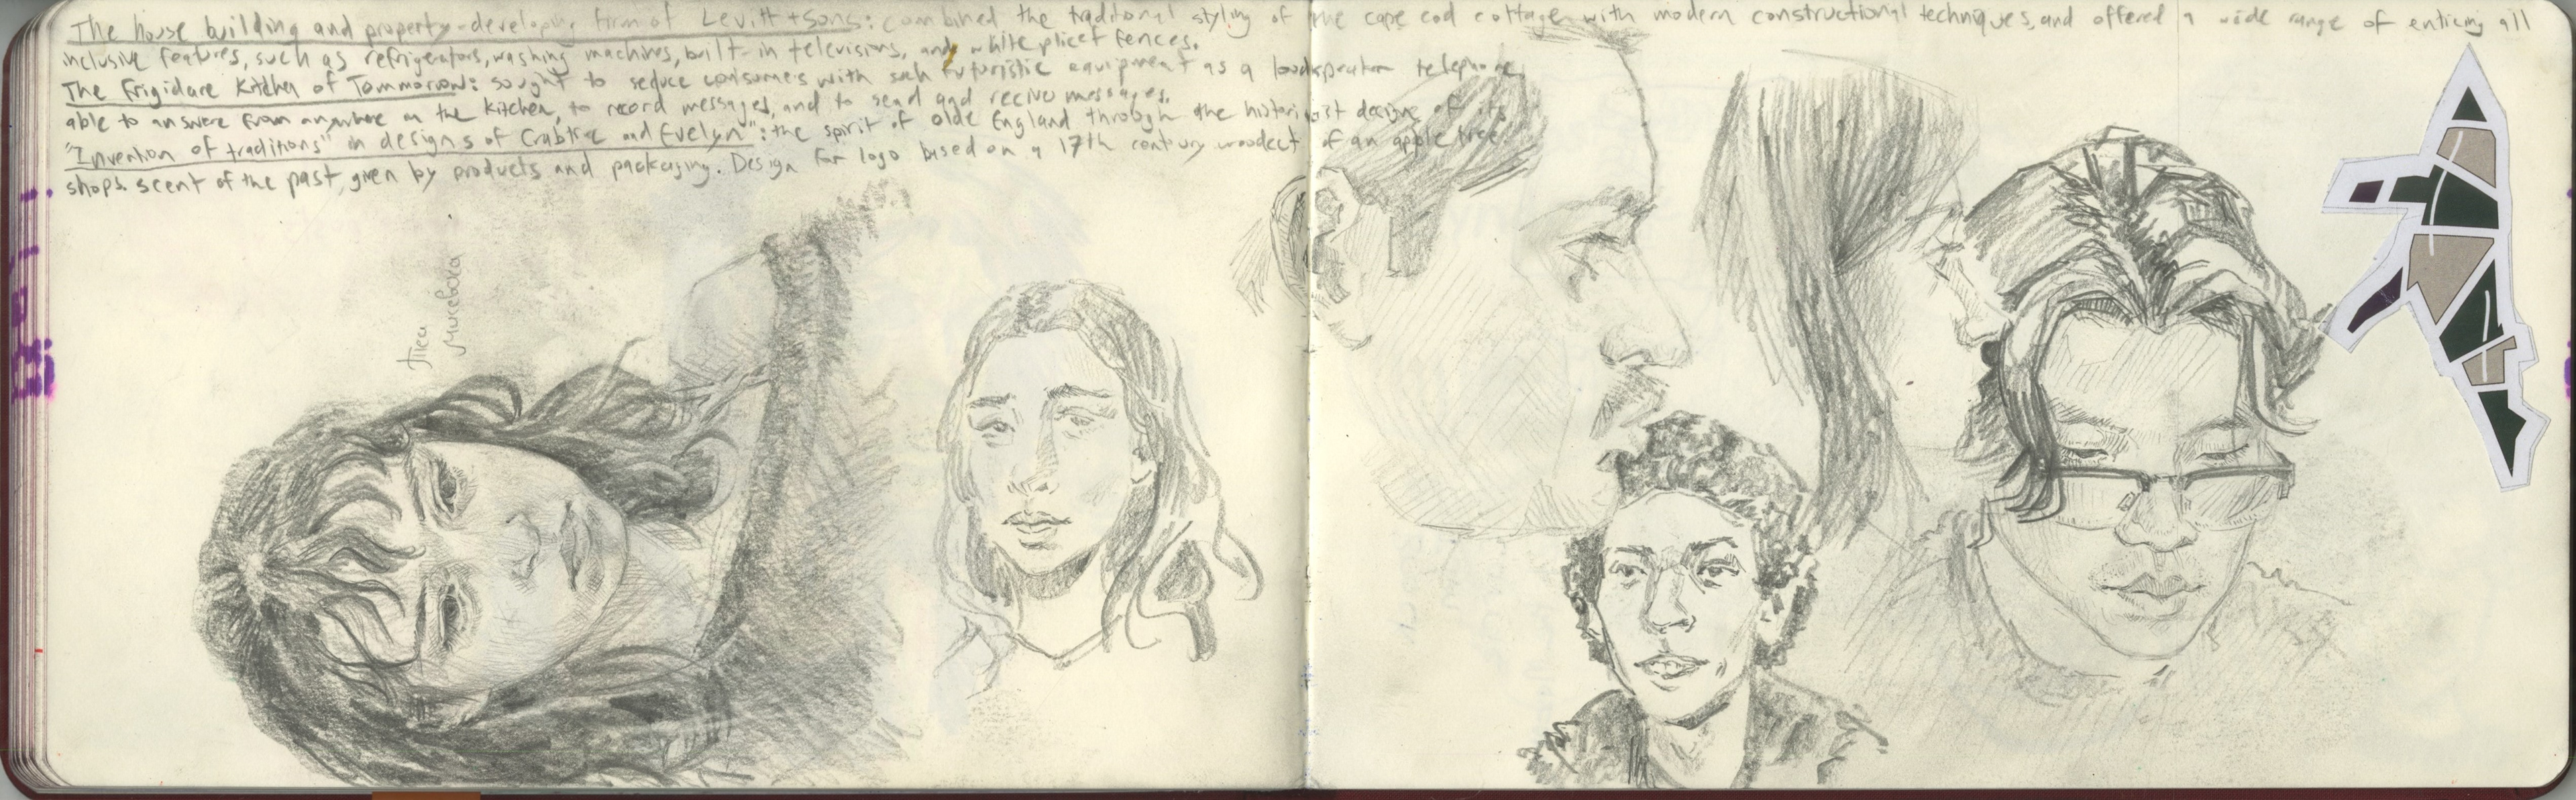 The house building and property-developing firm of Levitt + sons: combined the traditional styling of the cape cod cottage with modern constructional techniques, and offered a wide range of enticing all
inclusive features, such as refrigerators, washing machines, built-in televisions, and white picet fences.
The Frigidare Kitchen of Tommorow: sought to seduce consumers with such futuristic equipment as a loudspeaker telephone,
able to answere from anywhere in the kitchen, to record messages, and to send and recive messages.
"Invention of traditions" in designs of Crabtree and Evelyn": the spirit of olde England through the historicist designs of its
shops. scent of the past, given by products and packaging. Design for logo based on a 17th century woodcut of an apple tree.
Мисевска